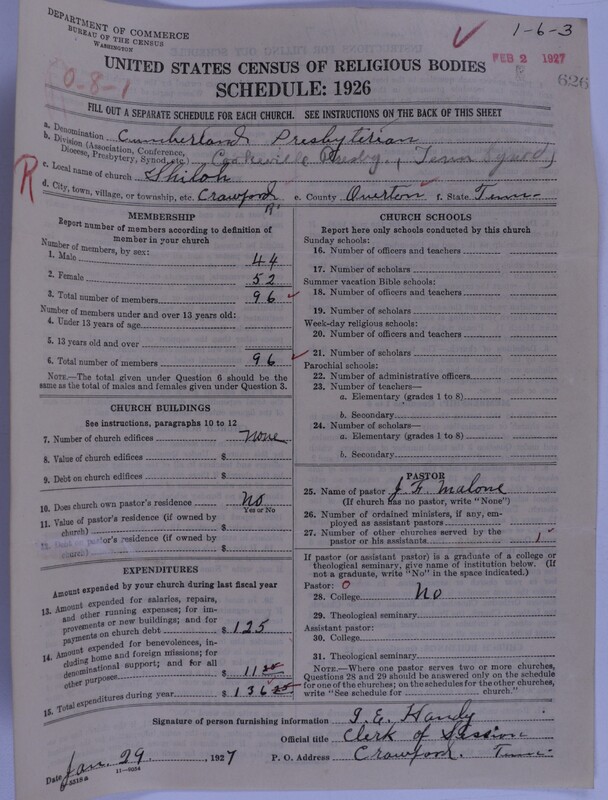 DEPARTMENT OF COMMERCE
BUREAU OF THE CENSUS
WASHINGTON
1-6-3
FEB 2 1927
626
0-8-1
UNITED STATES CENSUS OF RELIGIOUS BODIES
SCHEDULE: 1926
FILL OUT A SEPARATE SCHEDULE FOR EACH CHURCH. SEE INSTRUCTIONS ON THE BACK OF THIS SHEET
a. Denomination Cumberland Presbyterian
b. Division (Association, Conference, Diocese, Presbytery, Synod, etc.) Cookeville Presby., Tenn Synod
c. Local name of church Shiloh
R
d. City, town, village, or township, etc. Crawford e. County Overton f. State Tenn.
MEMBERSHIP
Report number of members according to definition of member in your church
Number of members, by sex:
1. Male 44
2. Female 52
3. Total number of members 96
Number of members under and over 13 years old:
4. Under 13 years of age
5. 13 years old and over
6. Total number of members 96
NOTE.—The total given under Question 6 should be the same as the total of males and females given under Question 3.
CHURCH BUILDINGS
See instructions, paragraphs 10 to 12
7. Number of church edifices None
8. Value of church edifices $
9. Debt on church edifices $
10. Does church own pastor's residence No
Yes or No
11. Value of pastor's residence (if owned by church) $
12. Debt on pastor's residence (if owned by church) $
EXPENDITURES
Amount expended by your church during last fiscal year
13. Amount expended for salaries, repairs, and other running expenses; for improvements or new buildings; and for payments on church debt $ 125
14. Amount expended for benevolences, including home and foreign missions; for denominational support; and for all other purposes $ 11 25
15. Total expenditures during year $ 136 25
CHURCH SCHOOLS
Report here only schools conducted by this church
Sunday schools:
16. Number of officers and teachers
17. Number of scholars
Summer vacation Bible schools:
18. Number of officers and teachers
19. Number of scholars
Week-day religious schools:
20. Number of officers and teachers
21. Number of scholars
Parochial schools:
22. Number of administrative officers
23. Number of teachers—
a. Elementary (grades 1 to 8)
b. Secondary
24. Number of scholars—
a. Elementary (grades 1 to 8)
b. Secondary
PASTOR
25. Name of pastor J. F. Malone
(If church has no pastor, write "None")
26. Number of ordained ministers, if any, employed as assistant pastors
27. Number of other churches served by the pastor or his assistants 1
If pastor (or assistant pastor) is a graduate of a college or theological seminary, give name of institution below. (If not a graduate, write "No" in the space indicated.)
Pastor: 0
28. College No
29. Theological seminary
Assistant pastor:
30. College
31. Theological seminary
NOTE.—Where one pastor serves two or more churches, Questions 28 and 29 should be answered only on the schedule for one of the churches; on the schedules for the other churches, write "See schedule for church."
Signature of person furnishing information J. E. Handy
Official title Clerk of Session
Date Jan. 29, 1927 P. O. Address Crawford. Tenn.
11—9034